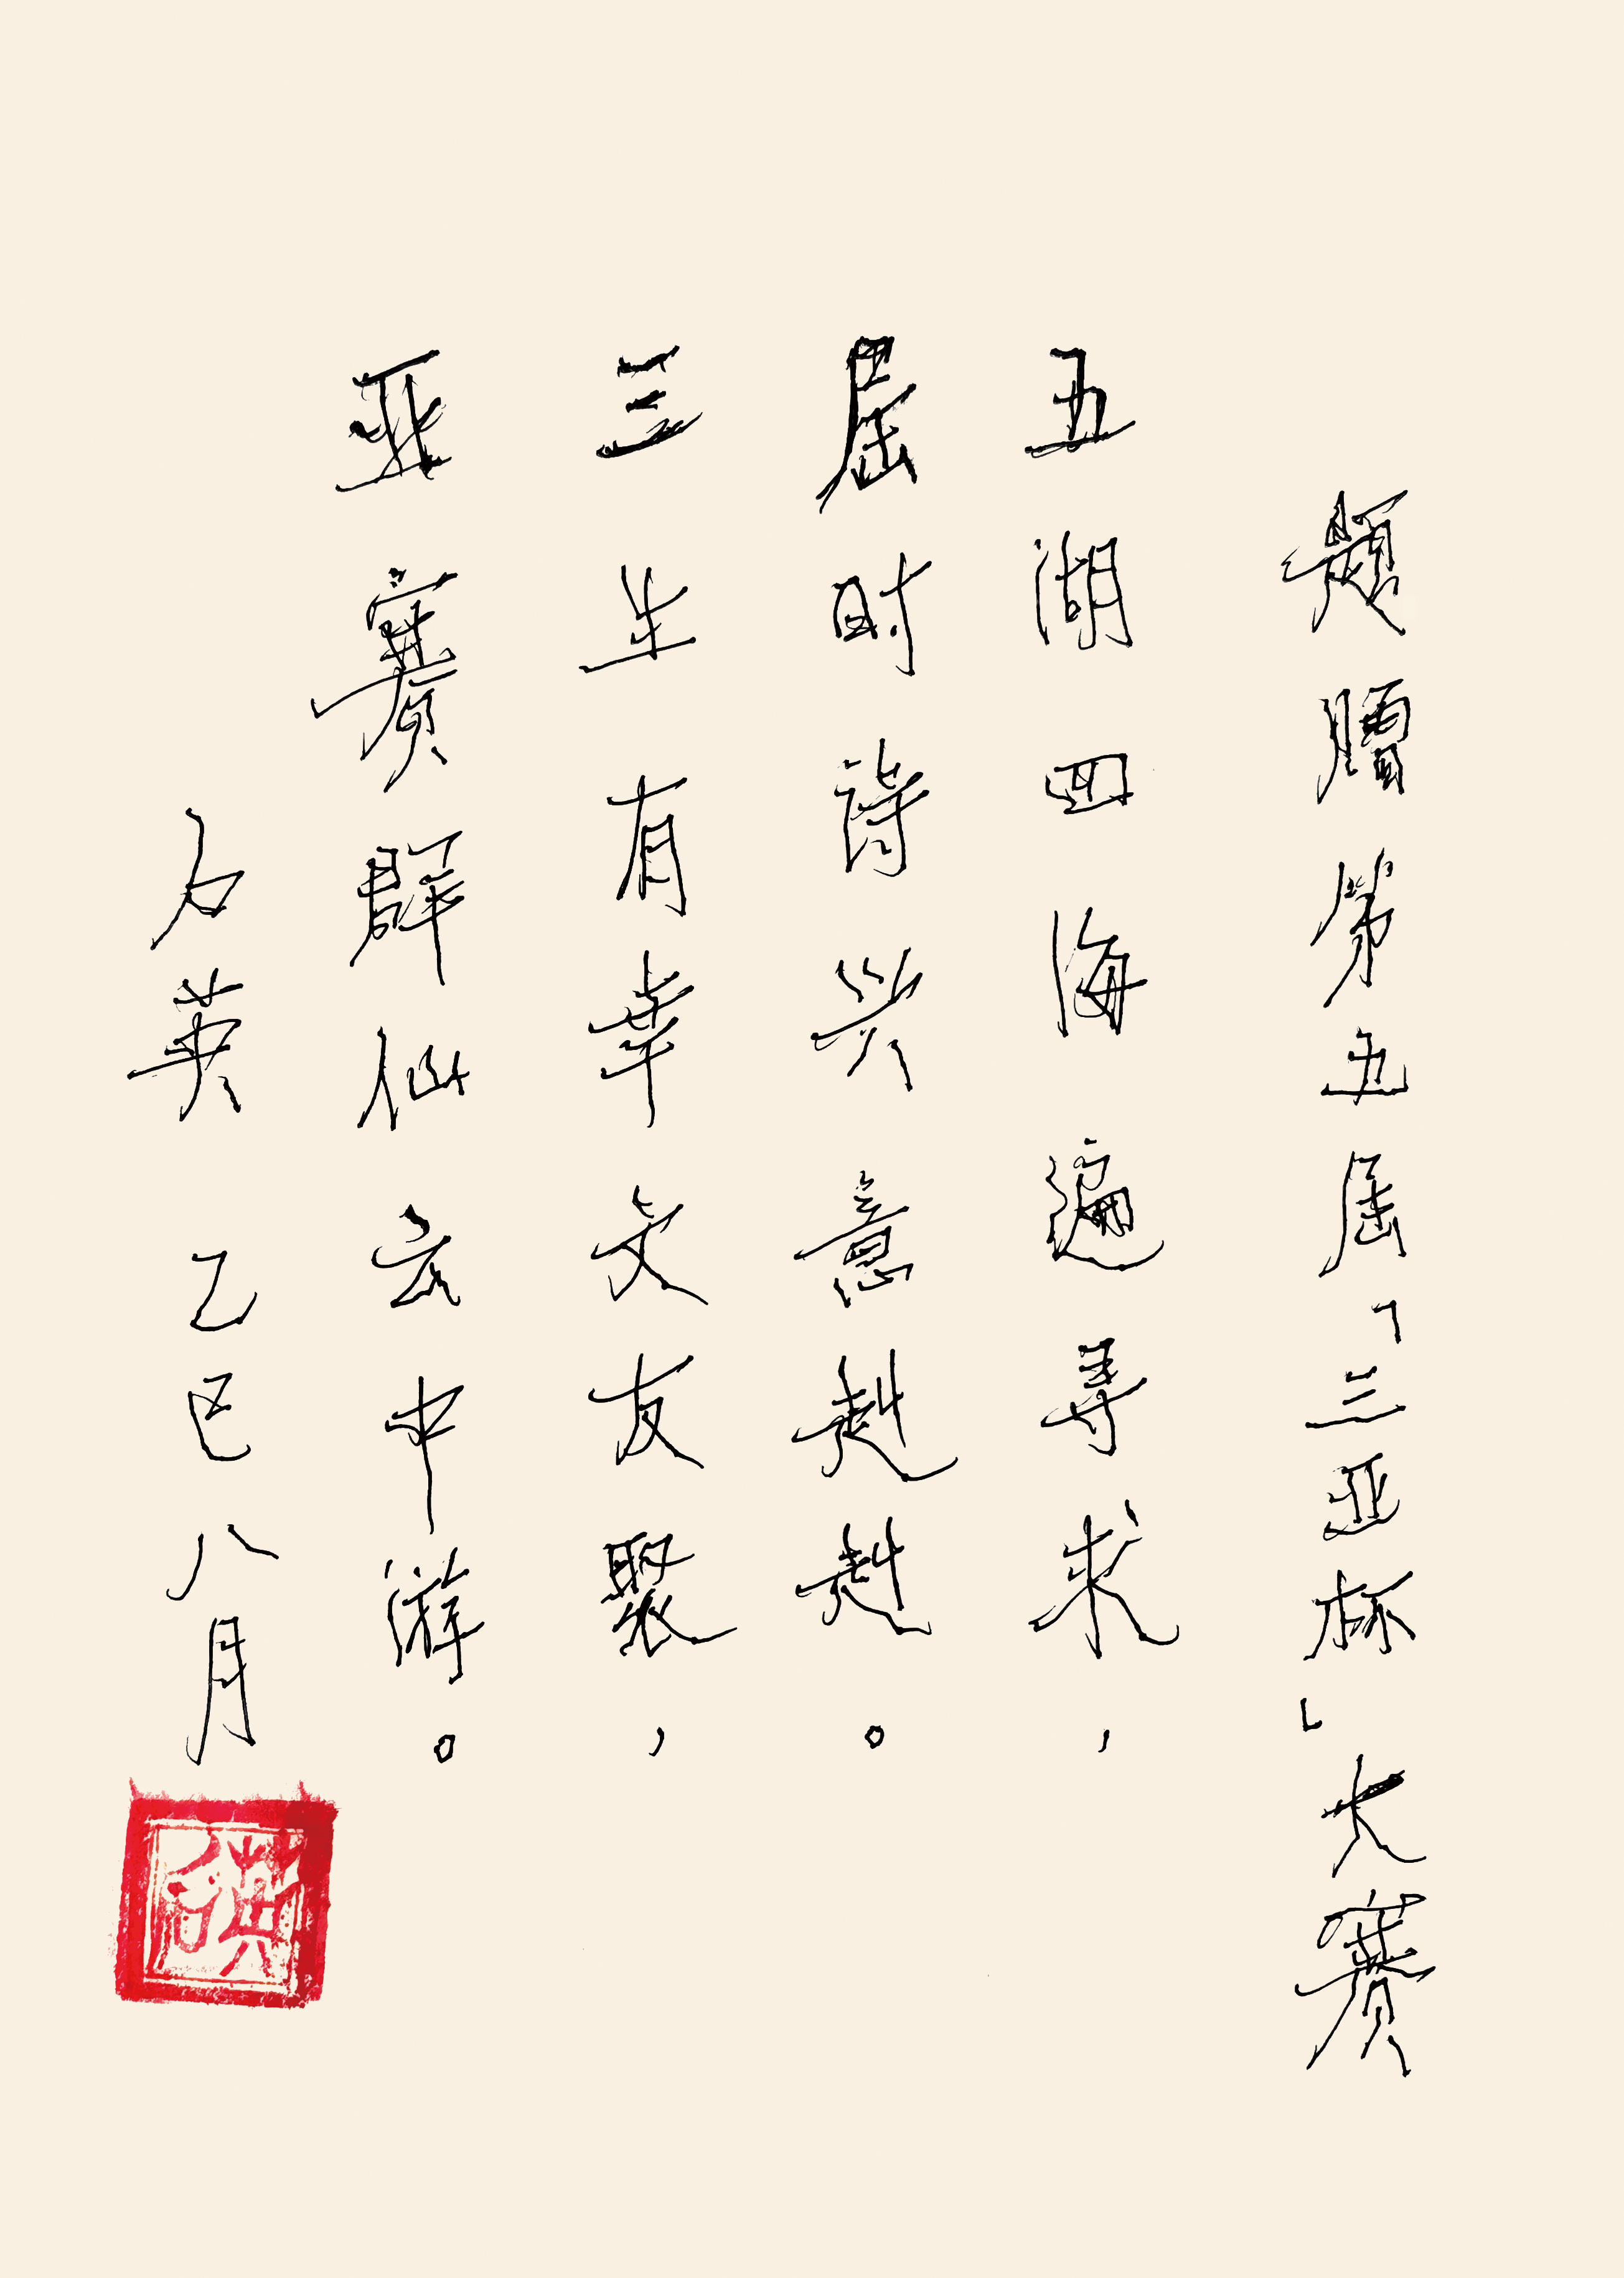 题赠第五届「三亚杯」大赛
五湖四海遍寻求，
届时诗兴意赳赳。
三生有幸文友聚，
亚赛群仙云中游。
石英 乙巳八月